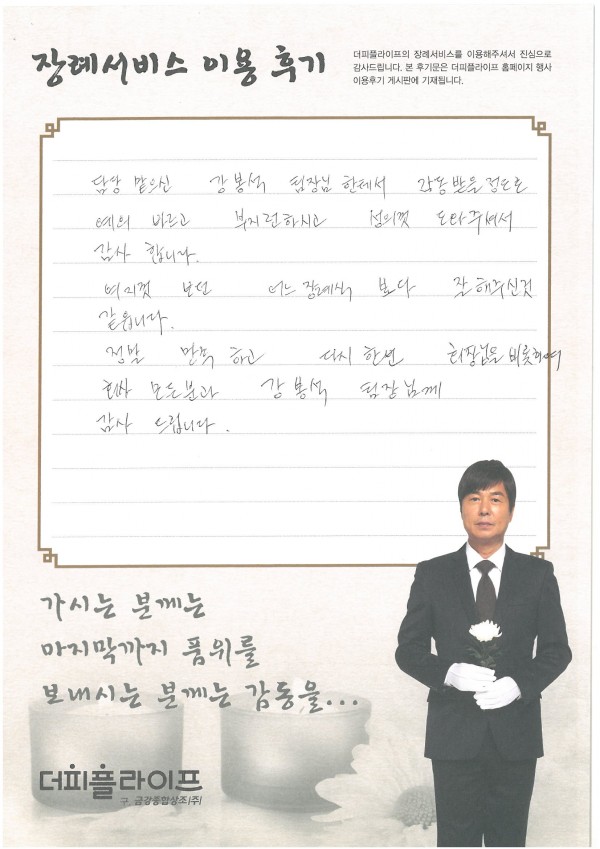 장례서비스 이용 후기
더피플라이프의 장례서비스를 이용해주셔서 진심으로
감사드립니다. 본 후기문은 더피플라이프 홈페이지 행사
이용후기 게시판에 기재됩니다.
담당 맡으신 강봉석 팀장님 한테서 감동받을정도로
예의 바르고 부지런하시고 성의껏 도와주셔서
감사 합니다.
여지껏 보던 어느 장례식 보다 잘해주신것
같읍니다.
정말 만족 하고 다시한번 회장님을 비롯하여
회사 모든분과 강봉석 팀장님께
감사 드립니다.
가시는 분께는
마지막까지 품위를
보내시는 분께는 감동을...
더피플라이프
구. 금강종합상조(주)